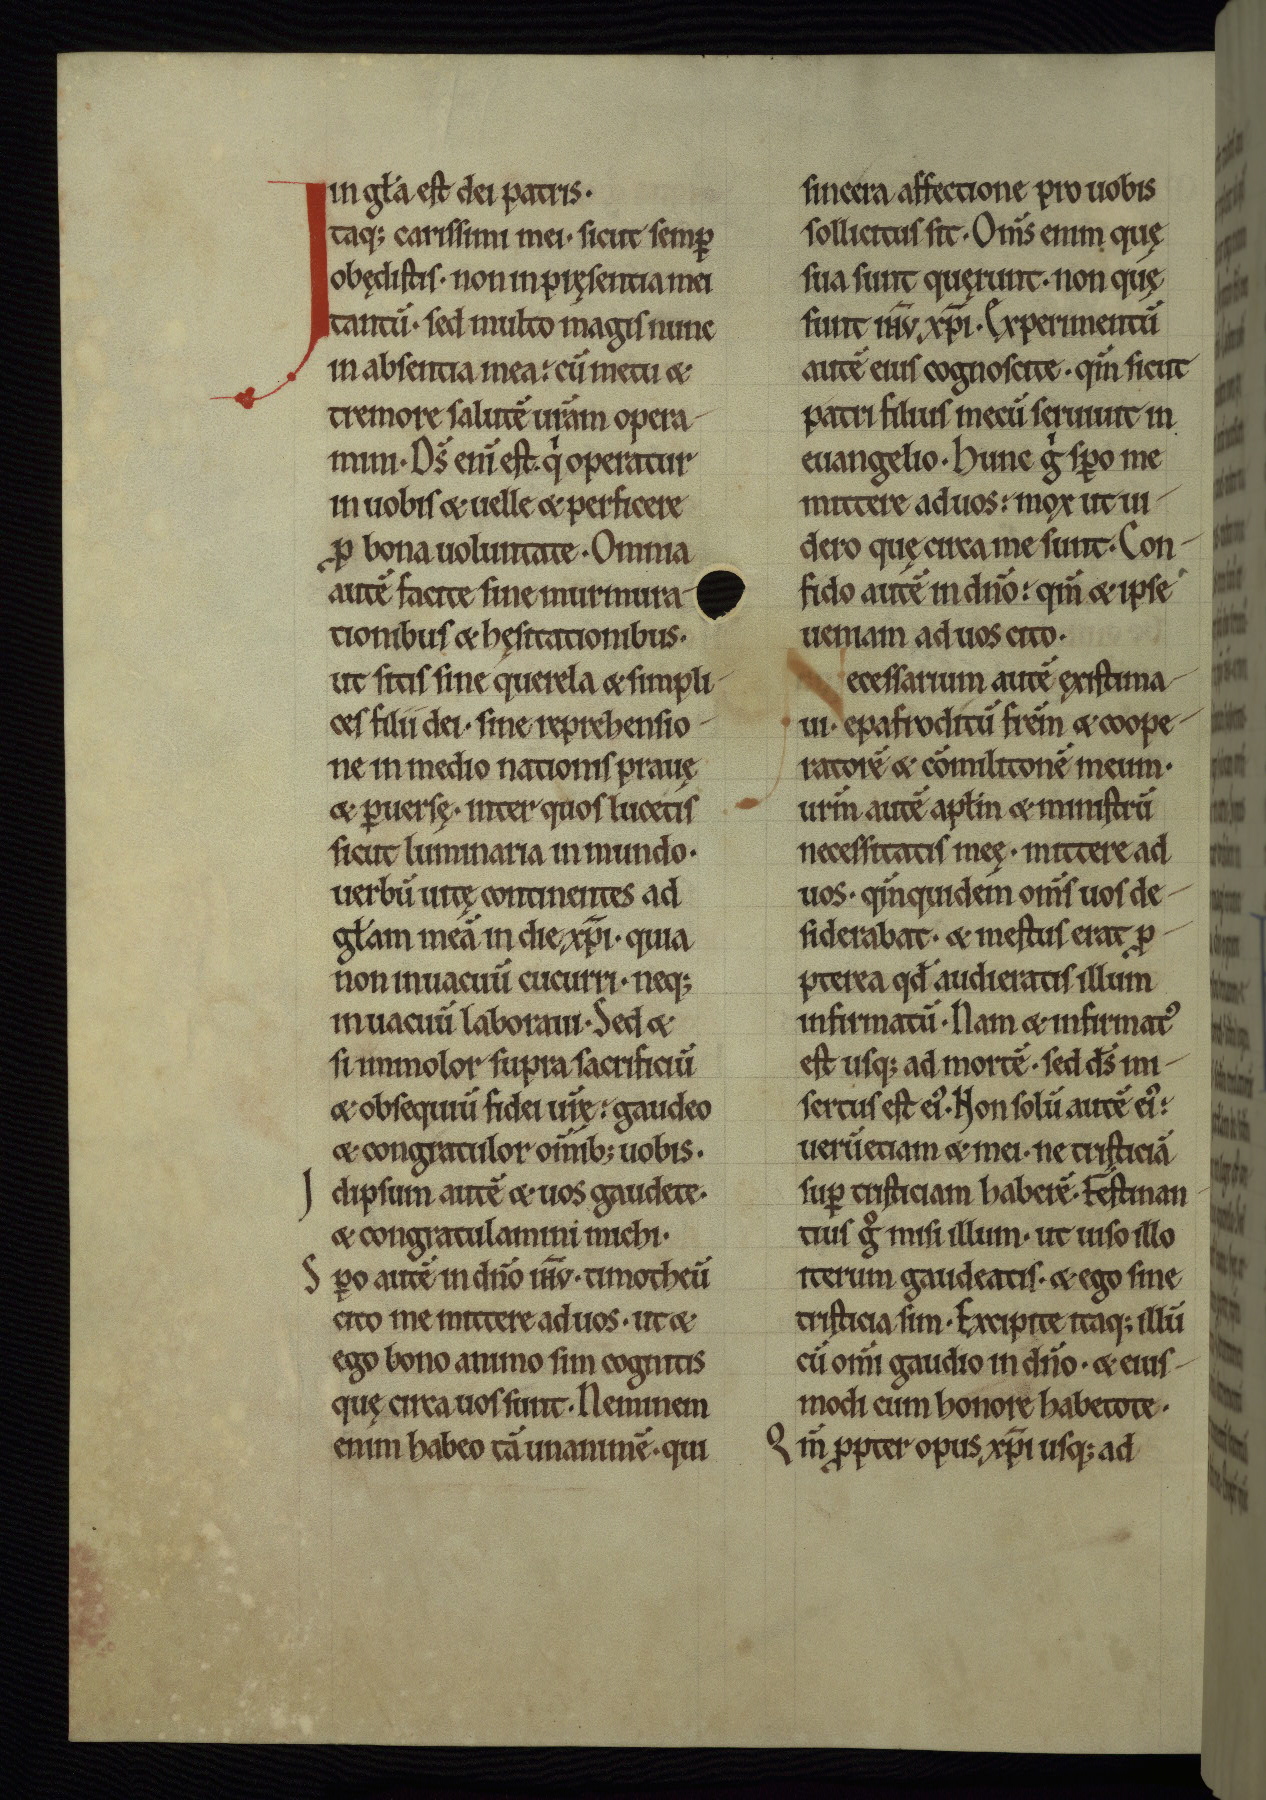 in gl̄a est dei patris·
Itaq; carissimi mei· sicut semꝑ
obędistis· non in pręsentia mei
tantū· sed multo magis nunc
in absentia mea: cū metu &
tremore salutē ur̄am opera-
mini· Ds̄ enī est qͥ operatur
in uobis & uelle & perficere
ꝓ bona uoluntate· Omnia
autē facite sine murmura-
tionibus & hęsitationibus·
ut sitis sine querela & simpli-
ces filii dei· sine reprehensio-
ne in medio nationis prauę
& ꝑuersę· inter quos lucetis
sicut luminaria in mundo·
uerbū uitę continentes ad
gl̄am meā in die xp̄i· quia
non in uacuū cucurri· neq;
in uacuū laboraui· Sed &
si immolor supra sacrificiū
& obsequiū fidei ur̄ę: gaudeo
& congratulor om̄ib; uobis·
Idipsum autē & uos gaudete·
& congratulamini michi·
Sꝑo autē in dn̄o ih̄v· timotheū
cito me mittere ad uos· ut &
ego bono animo sim cognitis
quę circa uos sunt· Neminem
enim habeo tā unanimē· qui
sincera affectione pro uobis
sollicitus sit· Om̄s enim quę
sua sunt quęrunt· non quę
sunt ih̄v xp̄i· Experimentū
autē eius cognoscite· qm̄ sicut
patri filius mecū seruiuit in
euangelio· Hunc gͥ sꝑo me
mittere ad uos: mox ut ui-
dero quę circa me sunt· Con-
fido autē in dn̄o: qm̄ & ipse
ueniam ad uos cito·
Necessarium autē ęxistima-
ui· epafroditū frēm & coope-
ratorē & cōmilitonē meum·
urm̄ autē apl̄m & ministrū
necessitatis meę· mittere ad
uos· qm̄ quidem om̄s uos de-
siderabat· & mestus erat ꝓ-
pterea qđ audieratis illum
infirmatū· Nam & infirmatꝰ
est usq; ad mortē· sed ds̄ mi-
sertus est eiꝰ· Non solū autē eiꝰ:
uerū etiam & mei· ne tristiciā
suꝑ tristiciam haberē· Festinan-
tius gͦ misi illum· ut uiso illo
iterum gaudeatis· & ego sine
tristicia sim· Excipite itaq; illū
cū om̄i gaudio in dn̄o· & eius-
modi cum honore habetote·
Qm̄ ꝓpter opus xp̄i usq; ad